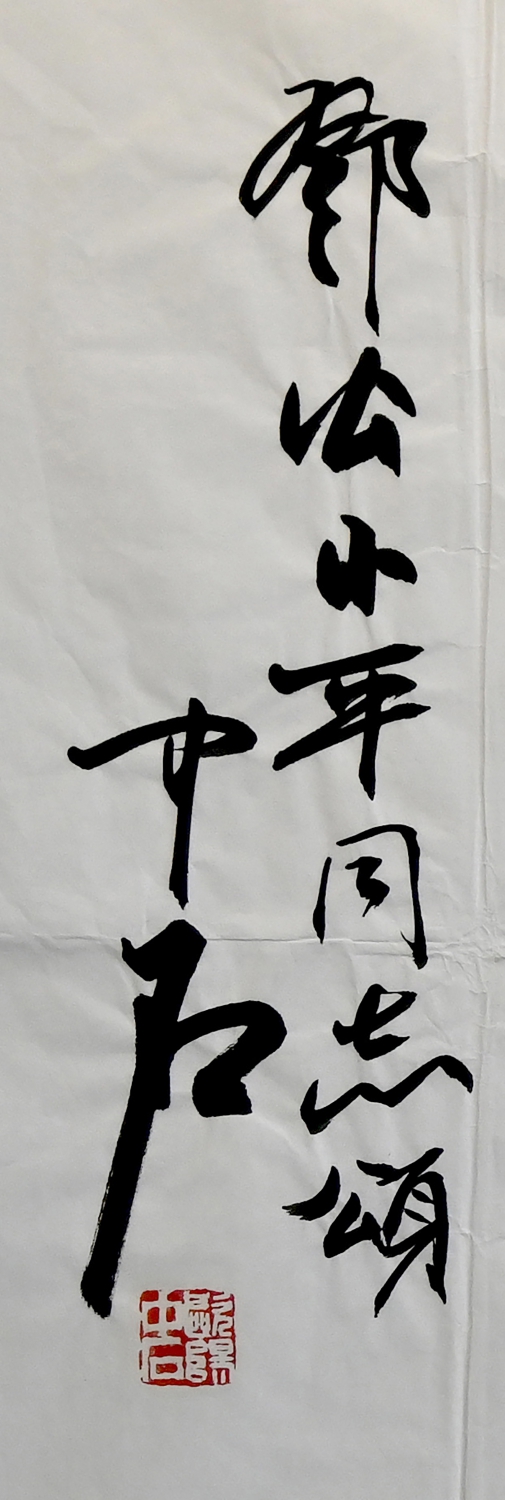 鄧公小平同志頌
中石
歐陽中石